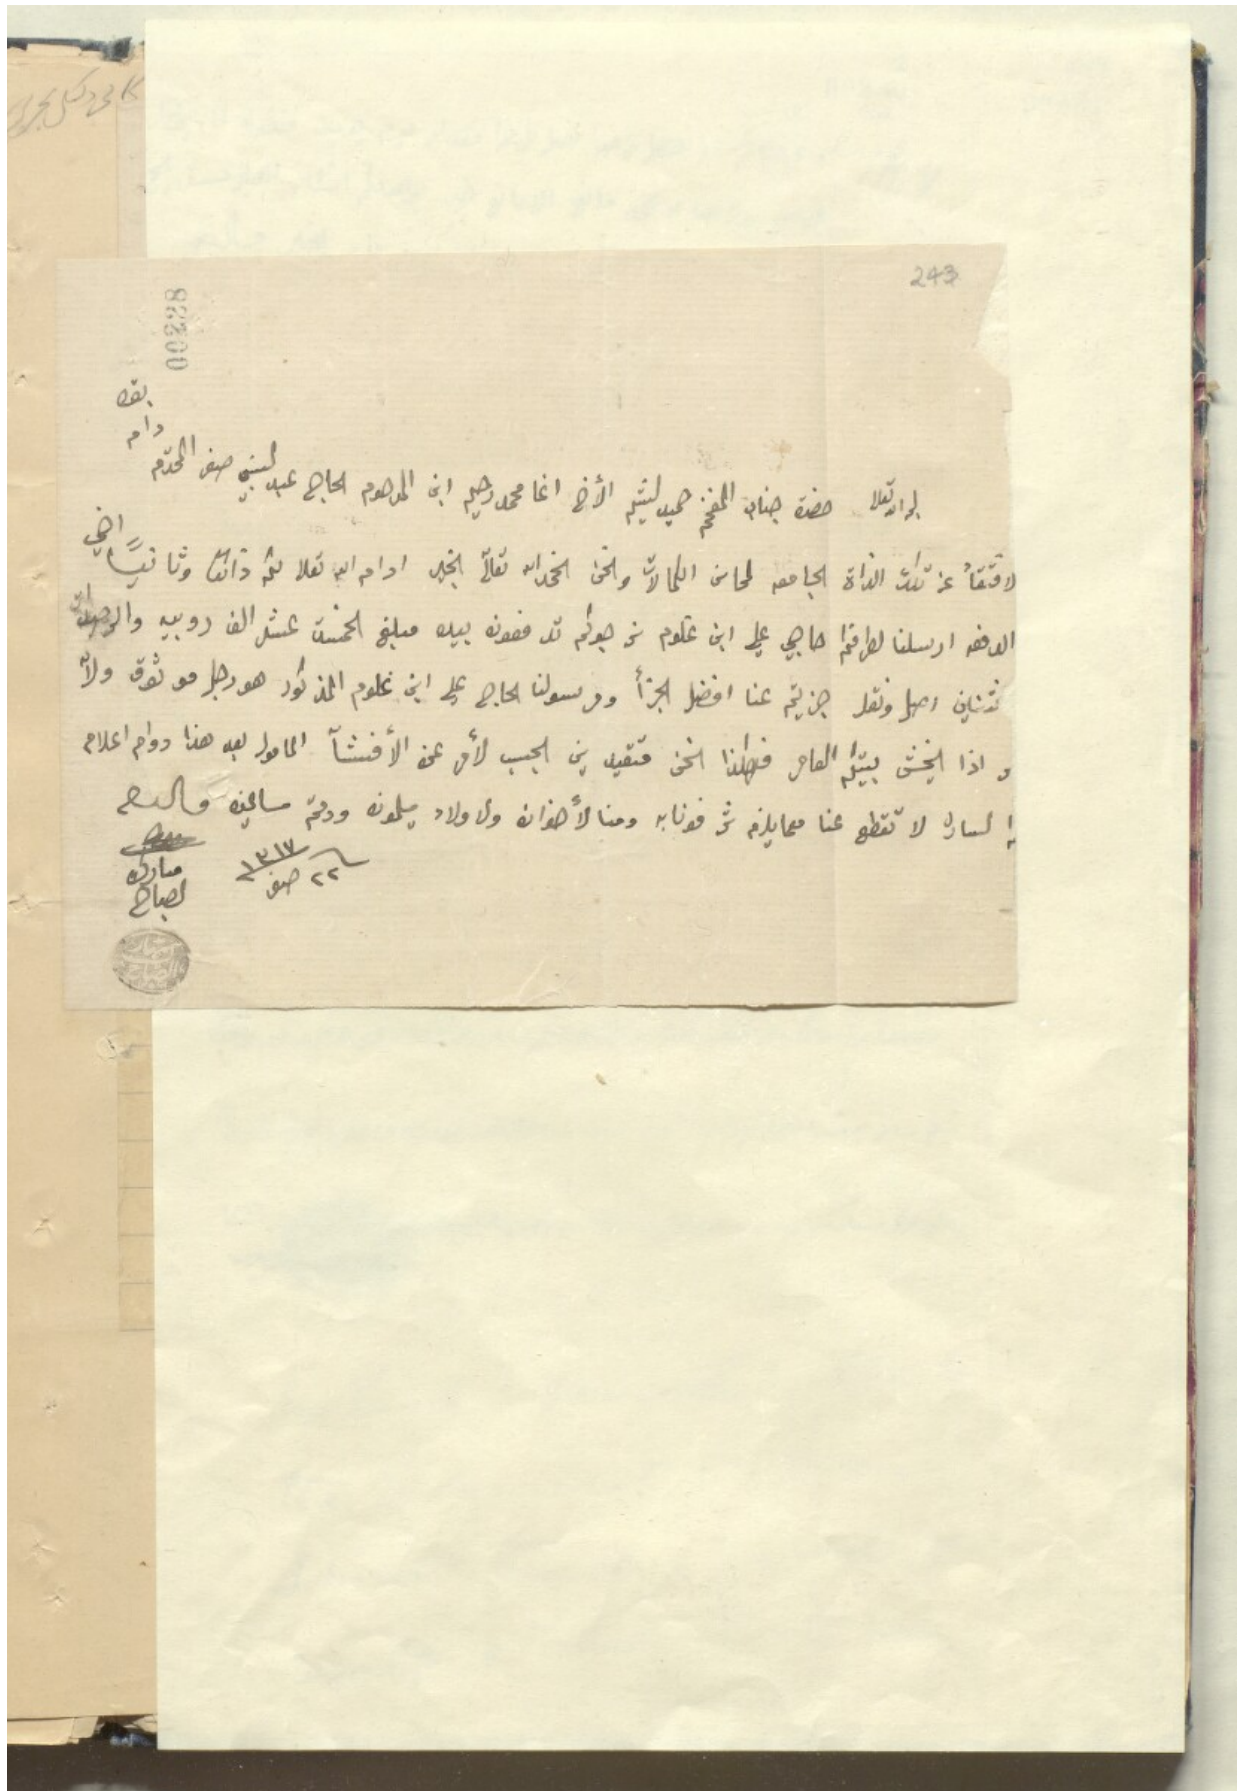 243
00238
بقاه
دام
لجوار الله تعالى حضرة جناب المفخم حميد الشيم الأخ اغا محمد رحيم ابن المرحوم الحاج عبد النبي صفر المحترم
تلك الذات الجامعه لمحاسن الكمالات ونحن الحمد الله تعالى بخير ادام الله تعالى لكم ذالك وثانياً اخي
الدفعه ارسلنا لطرفكم حاجي علي ابن غلوم نرجوكم تدفعون بيده مبلغ الخمسة عشر الف روبيه
اصل ونقل جزيتم عنا افضل الجزأ ومرسولنا الحاج علي ابن غلوم المذكور هو رجل موثوق ولا
اذا يخش بيتكم العامر فلهاذا نحن متقيدين بحسب لأمر عن الأفشآ المامول بعد هذا دوام اعلام
الساره لا تقطع عنا مهما يلزم شرفونا به ومنا لأخوان ولاولاد يسلمون ودمتم سالمين والسلام
٢٢ صفر ١٣١٧
مبارك
الصباح